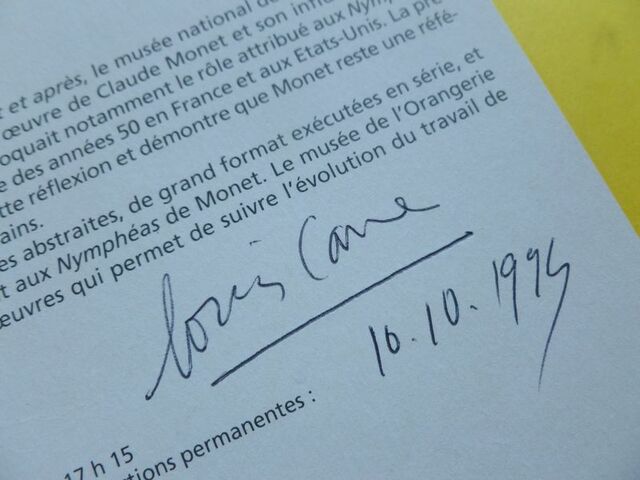 t et après, le musée national de
œuvre de Claude Monet et son influ
oquait notamment le rôle attribué aux Nymp
e des années 50 en France et aux Etats-Unis. La pré
tte réflexion et démontre que Monet reste une réfé-
ains.
es abstraites, de grand format exécutées en série, et
t aux Nymphéas de Monet. Le musée de l'Orangerie
œuvres qui permet de suivre l'évolution du travail de
Louis Cane
10.10.1994
17 h 15
ctions permanentes :